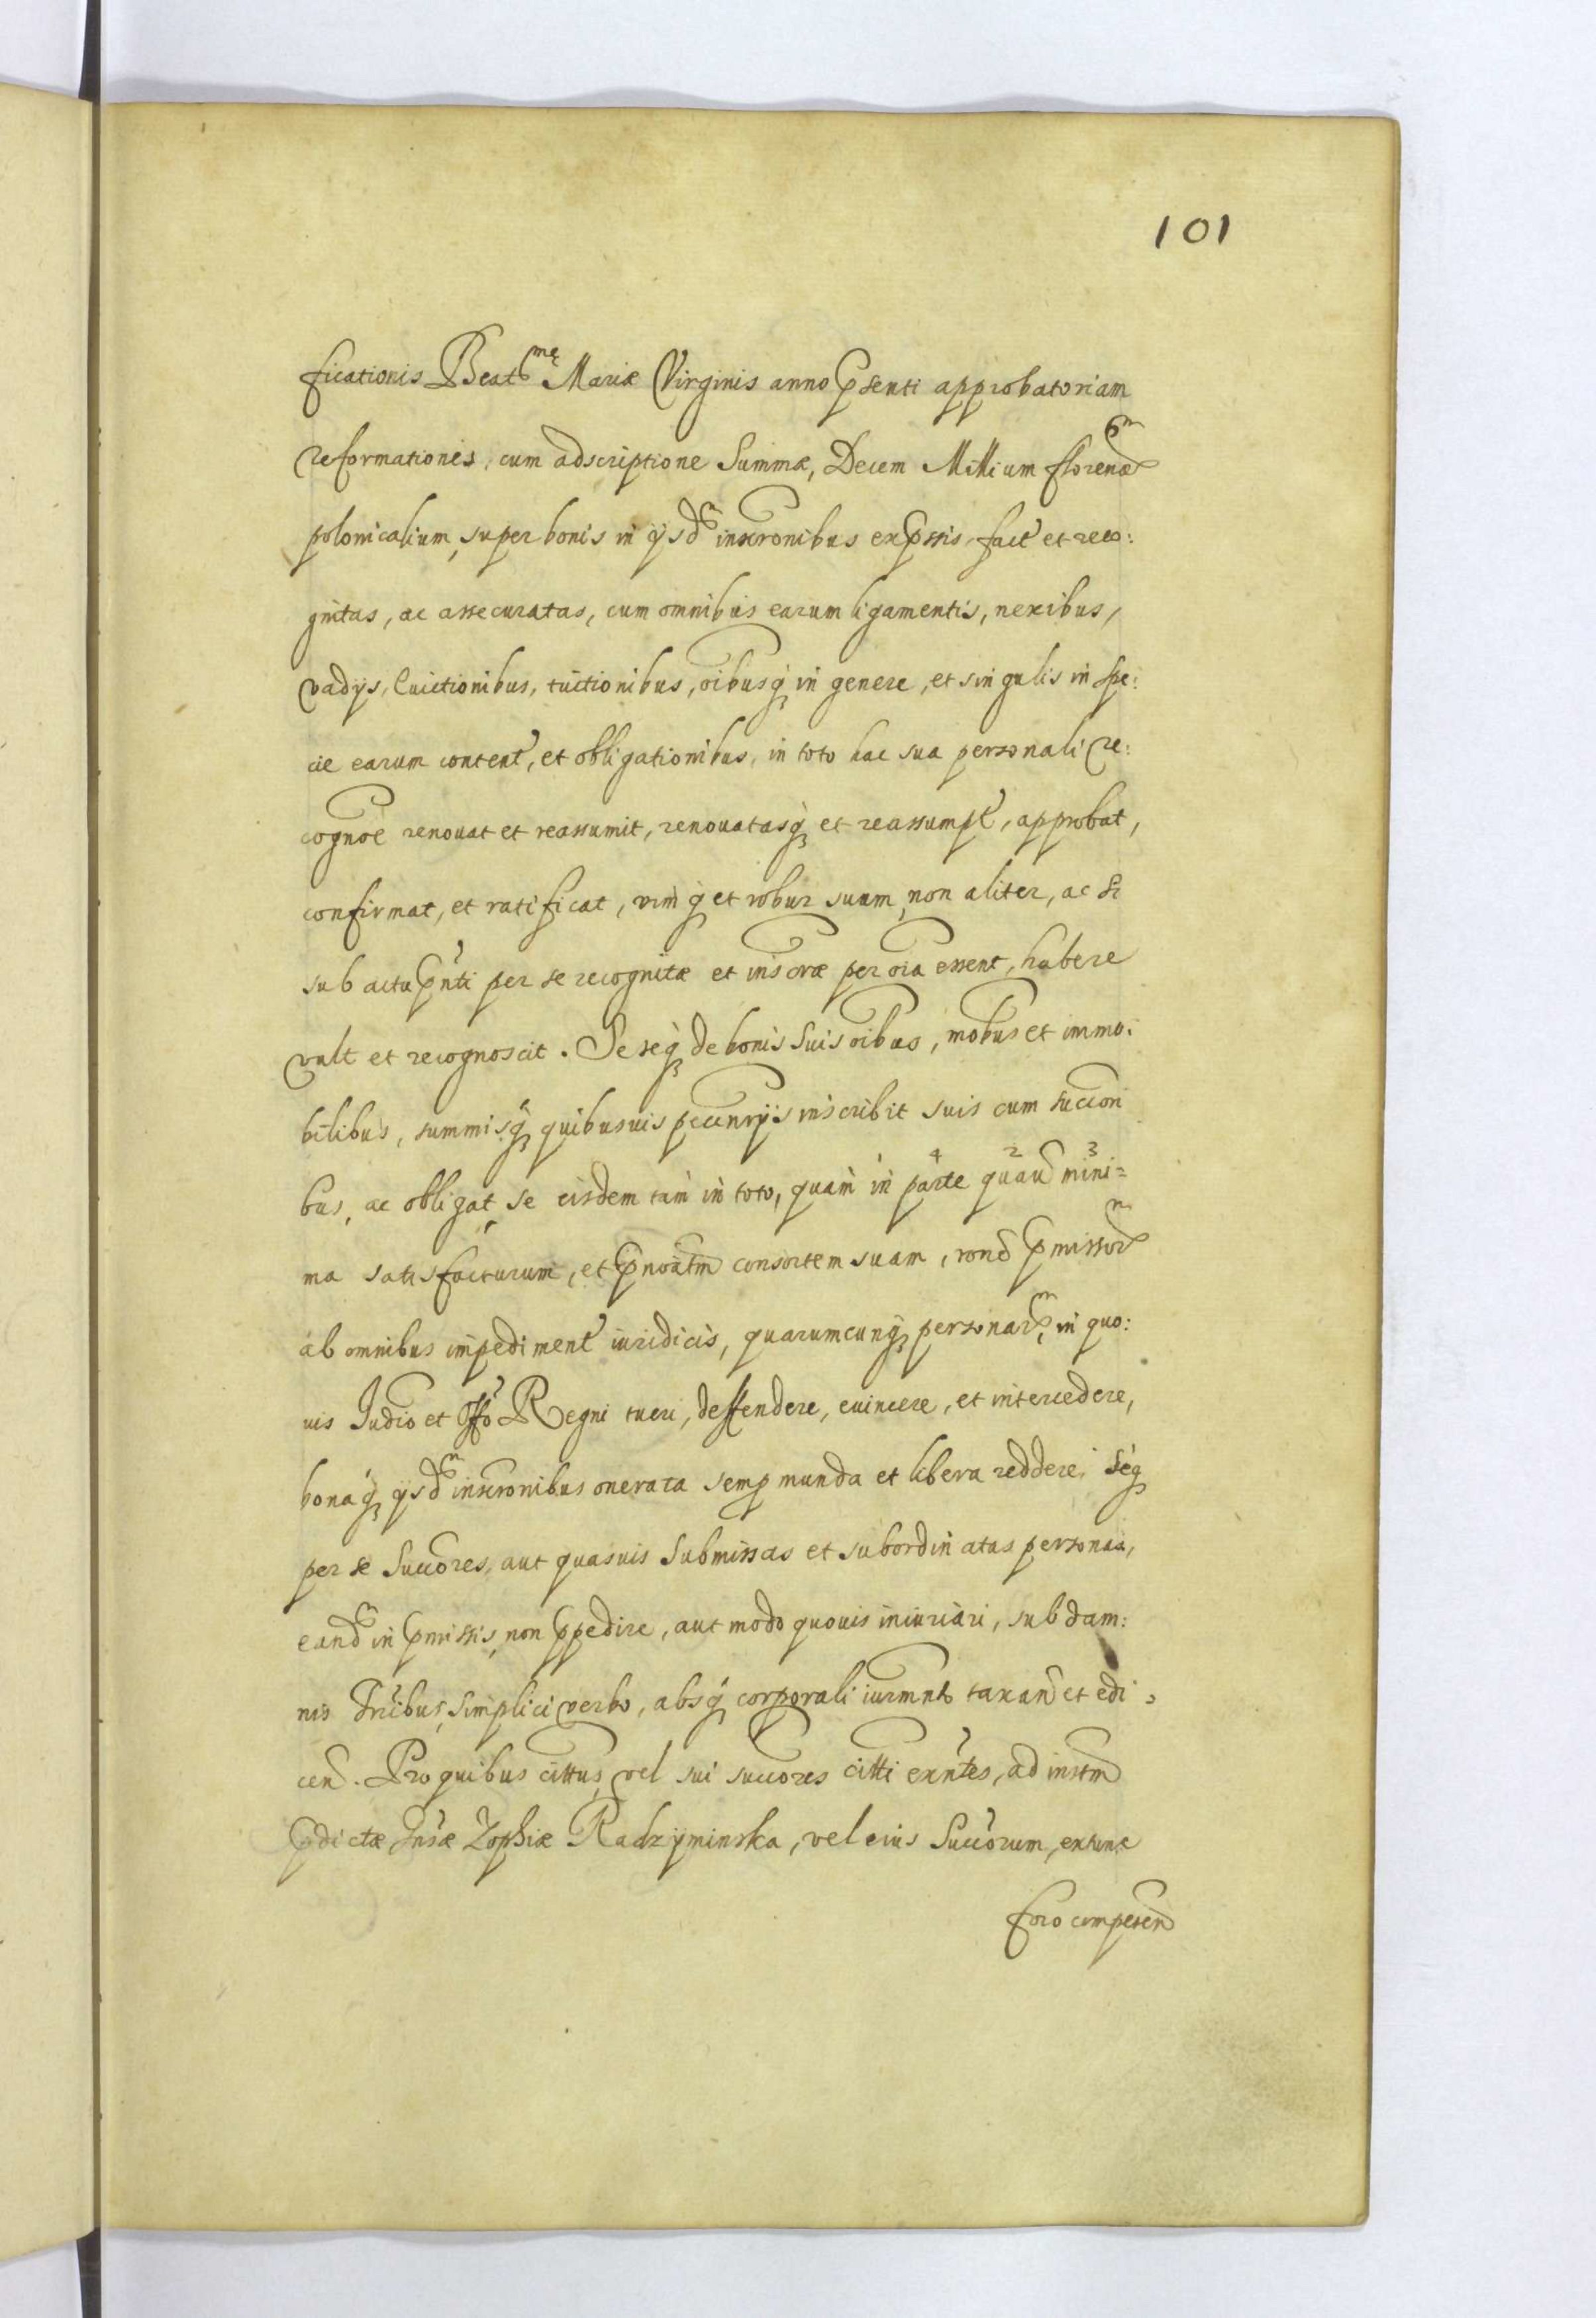 101
ficationis Beatmę Mariæ Virginis anno p̱senti approbatoriam
reformationis, cum adscriptione Summæ, Decem Millium florenor̃m
polonicalium, super bonis in ijsdm inscronibus exp̱ssis, fact̉ et reco:
gnitas, ac assecuratas, cum omnibus earum ligamentis, nexibus,
vadijs, Euictionibus, tuitionibus, oĩbusq̨ in genere, et singulis in spe:
cie earum content̉, et obligationibus, in toto hac sua personali re:
cognõe renouat et reassumit, renouatasq̨ et reassumpt̉, approbat,
confirmat, et ratificat, vimq̨ et robur suum, non aliter, ac si
sub actu p̱nti per se recognitæ et inscræ per oĩa essent, habere
vult et recognoscit. Seseq̨ de bonis suis oĩbus, mobus et immo:
bilibus, summisq̨ quibusuis pecunrijs inscribit suis cum succori
bus, ac obligat, se eisdem tam in toto, quam in 4 parte 2 quau 3 mini=
ma satisfacturum, et p̱noãtm consortem suam, rone p̱missor̃m
ab omnibus impediment̉ iuridicis, quarumcunq̨ personar̃m, in quo:
uis Judio et Offo Regni tueri, deffendere, euincere, et intercedere,
bonaq̨ ijsdm inscronibus onerata semp̱ munda et libera reddere, seq̨
per se Succores, aut quasuis Submissas et subordinatas personas,
eandm in p̱missis, non p̱pedire, aut modo quouis iniuriari, sub dam:
nis tribus, simplici verbo, absq̨ corporali iurmnto taxand et edi:
cend. Pro quibus cittus, vel sui succores citti exñtes, ad instm
p̱dictæ Gnsæ Zophiæ Radzyminska, vel eius Succorum, extunc
foro competen